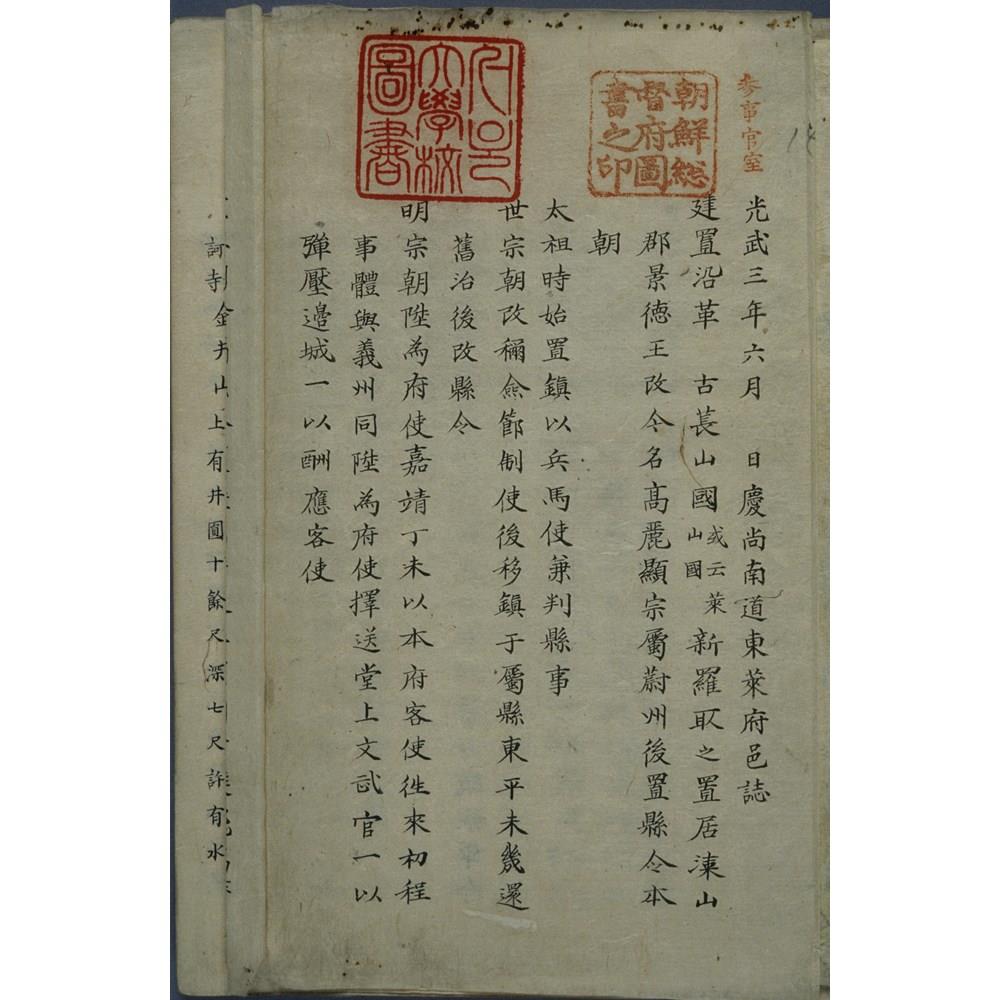 參事官室
朝鮮総
督府圖
書之印
大學校
圖書
光武三年六月 日慶尚南道東萊府邑誌
建置沿革 古萇山國或云萊山國新羅取之置居漆山
郡景德王改今名高麗顯宗屬蔚州後置縣令本
朝
太祖時始置鎭以兵馬使兼判縣事
世宗朝改稱僉節制使後移鎭于屬縣東平未幾還
舊治後改縣令
明宗朝陞為府使嘉靖丁未以本府客使徃來初程
事體與義州同陞為府使擇送堂上文武官一以
彈壓邉城一以酬應客使
寺金井山上有井圓十餘尺深七尺許有水